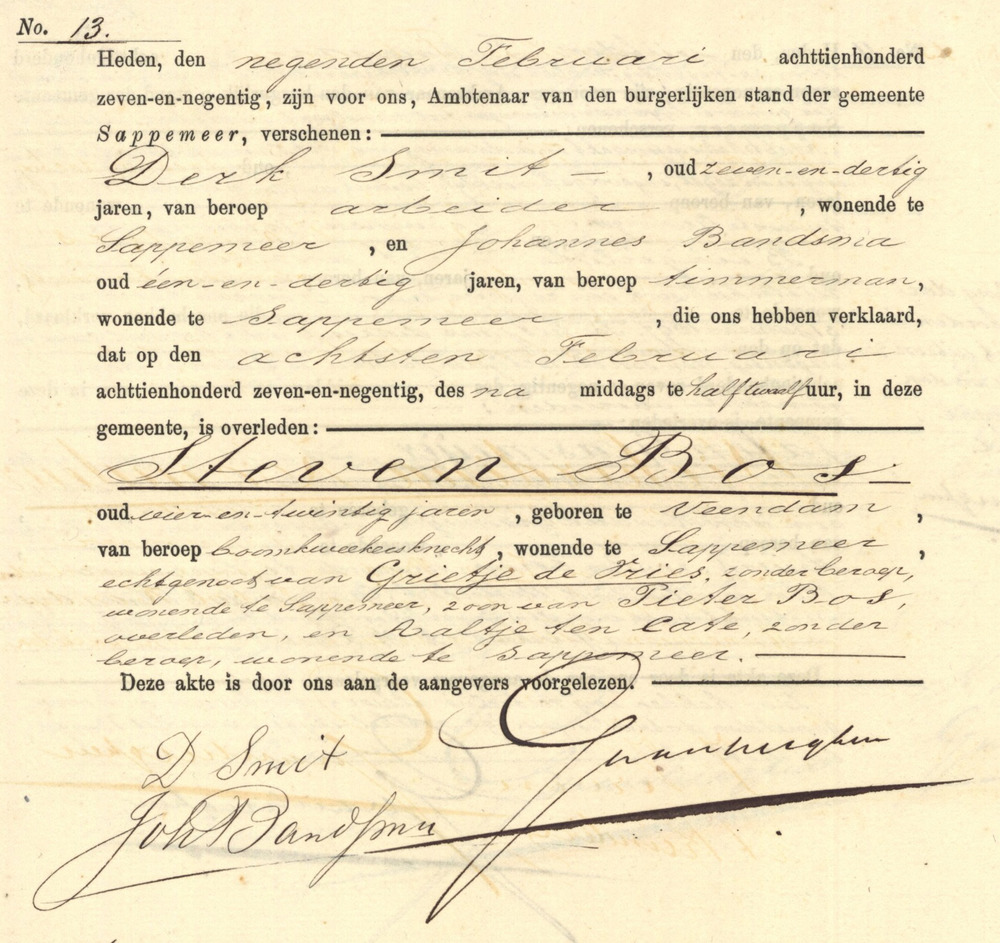 No. 13.
Heden, den negenden Februari achttienhonderd
zeven-en-negentig, zijn voor ons, Ambtenaar van den burgerlijken stand der gemeente
Sappemeer, verschenen:
Derk Smit , oud zeven-en-dertig
jaren, van beroep arbeider , wonende te
Sappemeer , en Johannes Bandsma
oud één-en-dertig jaren, van beroep timmerman,
wonende te Sappemeer , die ons hebben verklaard,
dat op den achtsten Februari
achttienhonderd zeven-en-negentig, des na middags te half twaalf uur, in deze
gemeente, is overleden:
Steven Bos
oud vier-en-twintig jaren , geboren te Veendam ,
van beroep boomkweekersknecht , wonende te Sappemeer ,
echtgenoot van Grietje de Vries, zonder beroep,
wonende te Sappemeer, zoon van Pieter Bos,
overleden, en Aaltje ten Cate, zonder
beroep, wonende te Sappemeer.
Deze akte is door ons aan de aangevers voorgelezen.
D Smit
Joh Bandsma